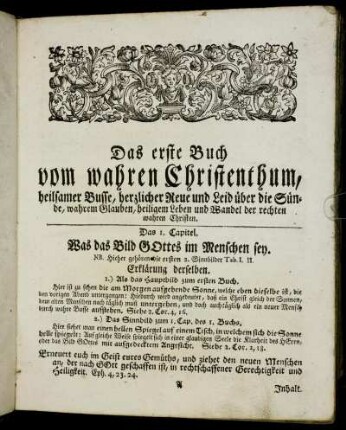 Das erste Buch
vom wahren Christenthum,
heilsamer Busse, herzlicher Reue und Leid über die Sün-
de, wahrem Glauben, heiligem Leben und Wandel der rechten
wahren Christen.
Das 1. Capitel.
Was das Bild GOttes im Menschen sey.
NB. Hieher gehören die ersten 2. Sinnbilder Tab. I. II.
Erklärung derselben.
1.) Als das Hauptbild zum ersten Buch.
Hier ist zu sehen die am Morgen aufgehende Sonne, welche eben dieselbe ist, die
den vorigen Abend untergangen: Hiedurch wird angedeutet, daß ein Christ gleich der Sonnen,
dem alten Menschen nach täglich muß untergehen, und doch auch täglich als ein neuer Mensch
durch wahre Busse aufstehen. Siehe 2. Cor. 4, 16.
2.) Das Sinnbild zum 1. Cap. des 1. Buchs.
Hier siehet man einen hellen Spiegel auf einem Tisch, in welchem sich die Sonne
helle spiegelt: Auf gleiche Weise spiegelt sich in einer gläubigen Seele die Klarheit des HErrn,
oder das Bild GOttes mit aufgedecktem Angesicht. Siehe 2. Cor. 3, 18.
Erneuert euch im Geist eures Gemüths, und ziehet den neuen Menschen
an, der nach GOtt geschaffen ist, in rechtschaffener Gerechtigkeit und
Heiligkeit. Eph. 4, 23. 24.
A
Inhalt.